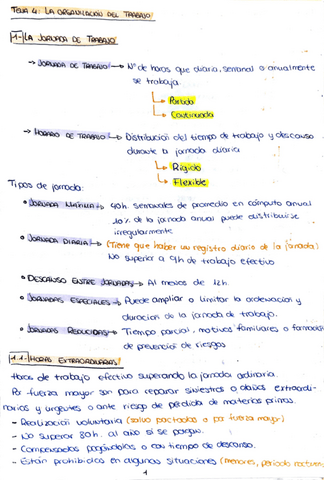 TEMA 4: LA ORGANIZACIÓN DEL TRABAJO
1- LA JORNADA DE TRABAJO
→ JORNADA DE TRABAJO → Nº de horas que diaria, semanal o anualmente
se trabaja.
↳ Partida
↳ Continuada
→ HORARIO DE TRABAJO → Distribución del tiempo de trabajo y descanso
durante la jornada diaria
↳ Rígido
↳ Flexible
Tipos de jornada:
• JORNADA MÁXIMA → 40h. semanales de promedio en cómputo anual
10% de la jornada anual puede distribuirse
irregularmente
• JORNADA DIARIA → (Tiene que haber un registro diario de la jornada)
No superior a 9h de trabajo efectivo
• DESCANSO ENTRE JORNADAS → Al menos de 12h.
• JORNADAS ESPECIALES → Puede ampliar o limitar la ordenación y
duración de la jornada de trabajo.
• JORNADAS REDUCIDAS → Tiempo parcial, motivos familiares o formación
de prevención de riesgos
1.1- HORAS EXTRAORDINARIAS
Horas de trabajo efectivo superando la jornada ordinaria.
Por fuerza mayor son para reparar siniestros o daños extraordi-
narios y urgentes o ante riesgo de pérdida de materias primas.
- Realización voluntaria (salvo pactadas o por fuerza mayor)
- No superar 80h. al año si se pagan.
- Compensadas pagándolas o con tiempo de descanso.
- Están prohibidas en algunas situaciones (menores, periodo nocturno
1